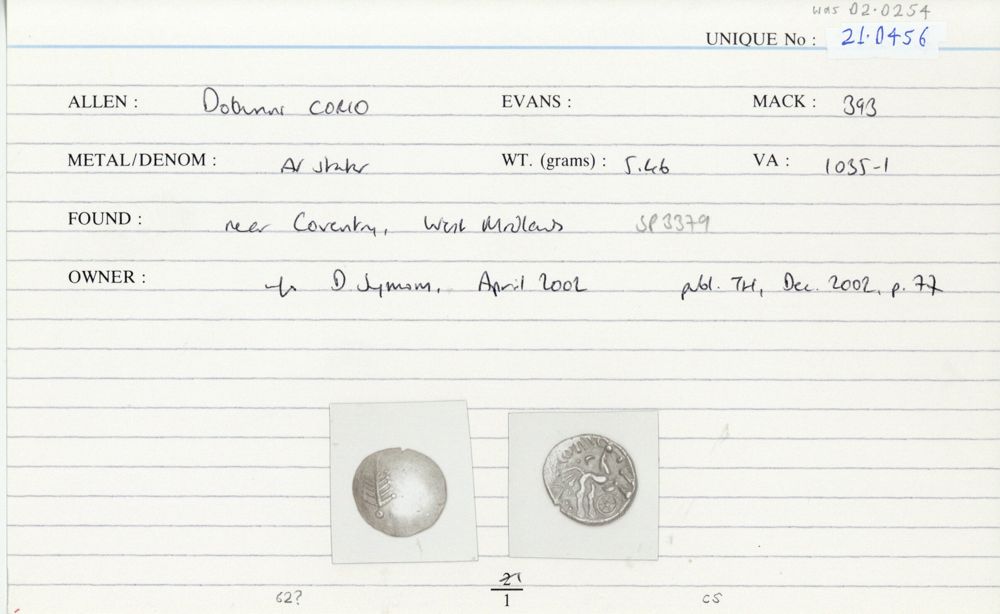 was 02·0254
UNIQUE No : 21·0456
ALLEN : Dobunni CORIO EVANS : MACK : 393
METAL/DENOM : AV stater WT. (grams) : 5.46 VA : 1035-1
FOUND : near Coventry, West Midlands SP3379
OWNER : D Symons, April 2002 publ. TH, Dec. 2002, p. 77
62? 21 CS
1